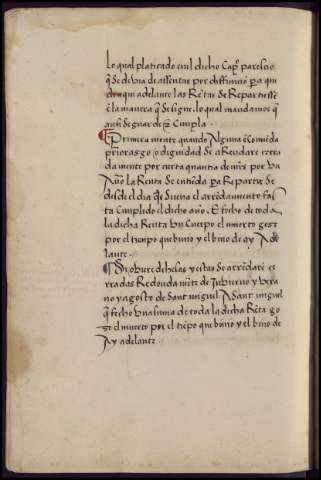 lo qual platicado en el dicho Cap̃o parescio
q̃ se devia de assentar por diffinicio pa que
de aqui adelante las Rẽtas se Repartiesse
ẽ la manera q̃ se sigue. lo qual mandamos q̃
ansi se guarde r̃ cumpla
Primera mente quando Alguna ẽcomiẽda
priorasgo o dignidad se aRendare cerra
da mente por cierta quantia de mr̃s por un
Año la Renta se entiẽda pa Repartir se
desde el dia q̃ se hizo el arrẽdamiento fas
ta cumplido el dicho año. E fecho de toda
la dicha Renta un cuerpo el muerto goze
por el tienpo que bivio y el bivo de ay Ade
lante
Si obiere dehesas y estas se arrẽdarẽ
cerradas Redonda mẽte de Invierno y vera
no y agosto de Sant miguel A Sant miguel
q̃ fecho una suma de toda la dicha Rẽta go
ze el muerto por el tiẽpo que bivio y el bivo de
Ay adelante